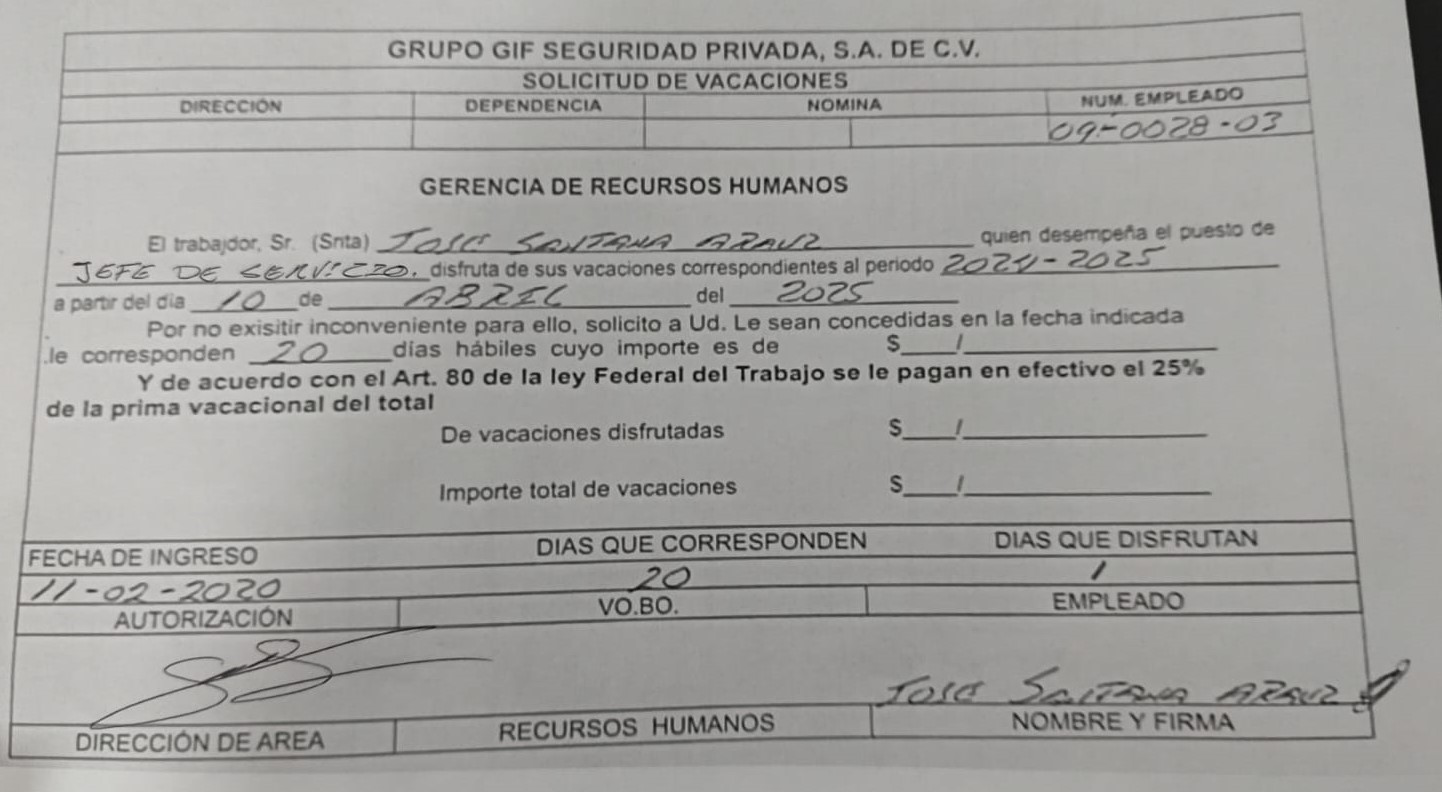 GRUPO GIF SEGURIDAD PRIVADA, S.A. DE C.V.
SOLICITUD DE VACACIONES
DIRECCIÓN DEPENDENCIA NOMINA NUM. EMPLEADO
09-0028-03
GERENCIA DE RECURSOS HUMANOS
El trabajdor, Sr. (Srita) JOSE SANTANA ARAUZ quien desempeña el puesto de
JEFE DE SERVICIO. disfruta de sus vacaciones correspondientes al periodo 2024-2025
a partir del día 10 de ABRIL del 2025
Por no exisitir inconveniente para ello, solicito a Ud. Le sean concedidas en la fecha indicada
.le corresponden 20 días hábiles cuyo importe es de $ /
Y de acuerdo con el Art. 80 de la ley Federal del Trabajo se le pagan en efectivo el 25%
de la prima vacacional del total
De vacaciones disfrutadas $ /
Importe total de vacaciones $ /
FECHA DE INGRESO DIAS QUE CORRESPONDEN DIAS QUE DISFRUTAN
11-02-2020 20 /
AUTORIZACIÓN VO.BO. EMPLEADO
JOSE SANTANA ARAUZ
DIRECCIÓN DE AREA RECURSOS HUMANOS NOMBRE Y FIRMA